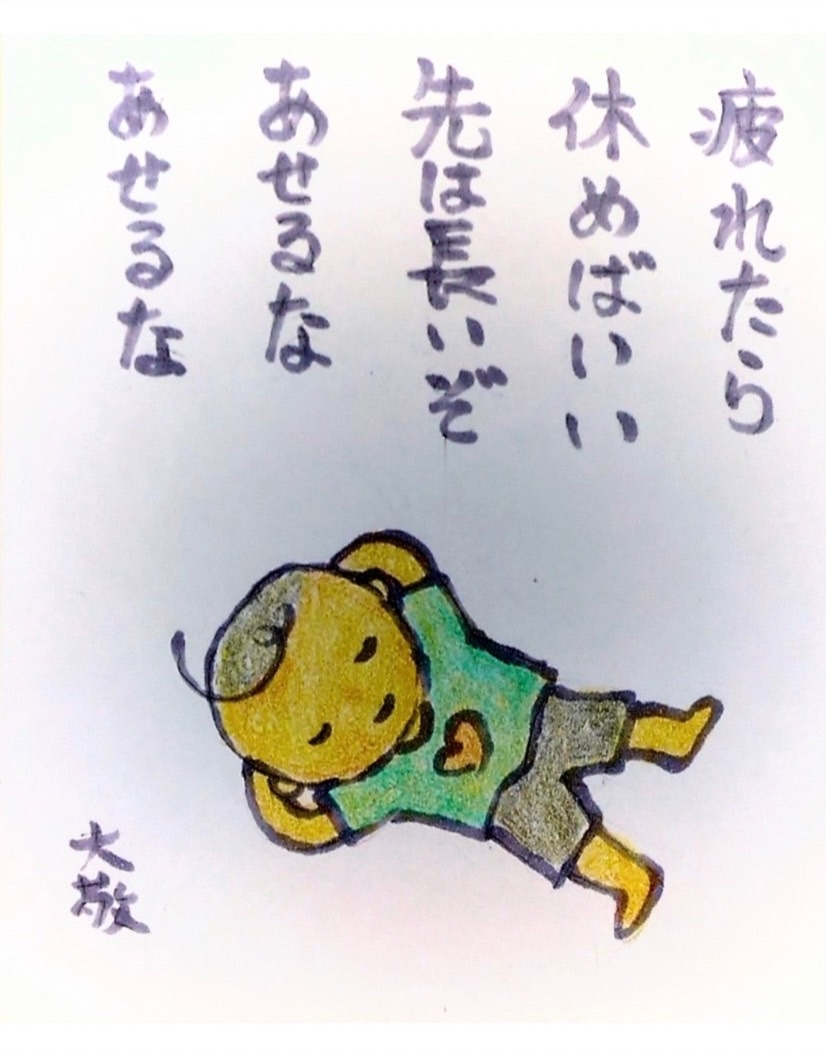 疲れたら
休めばいい
先は長いぞ
あせるな
あせるな
大敬